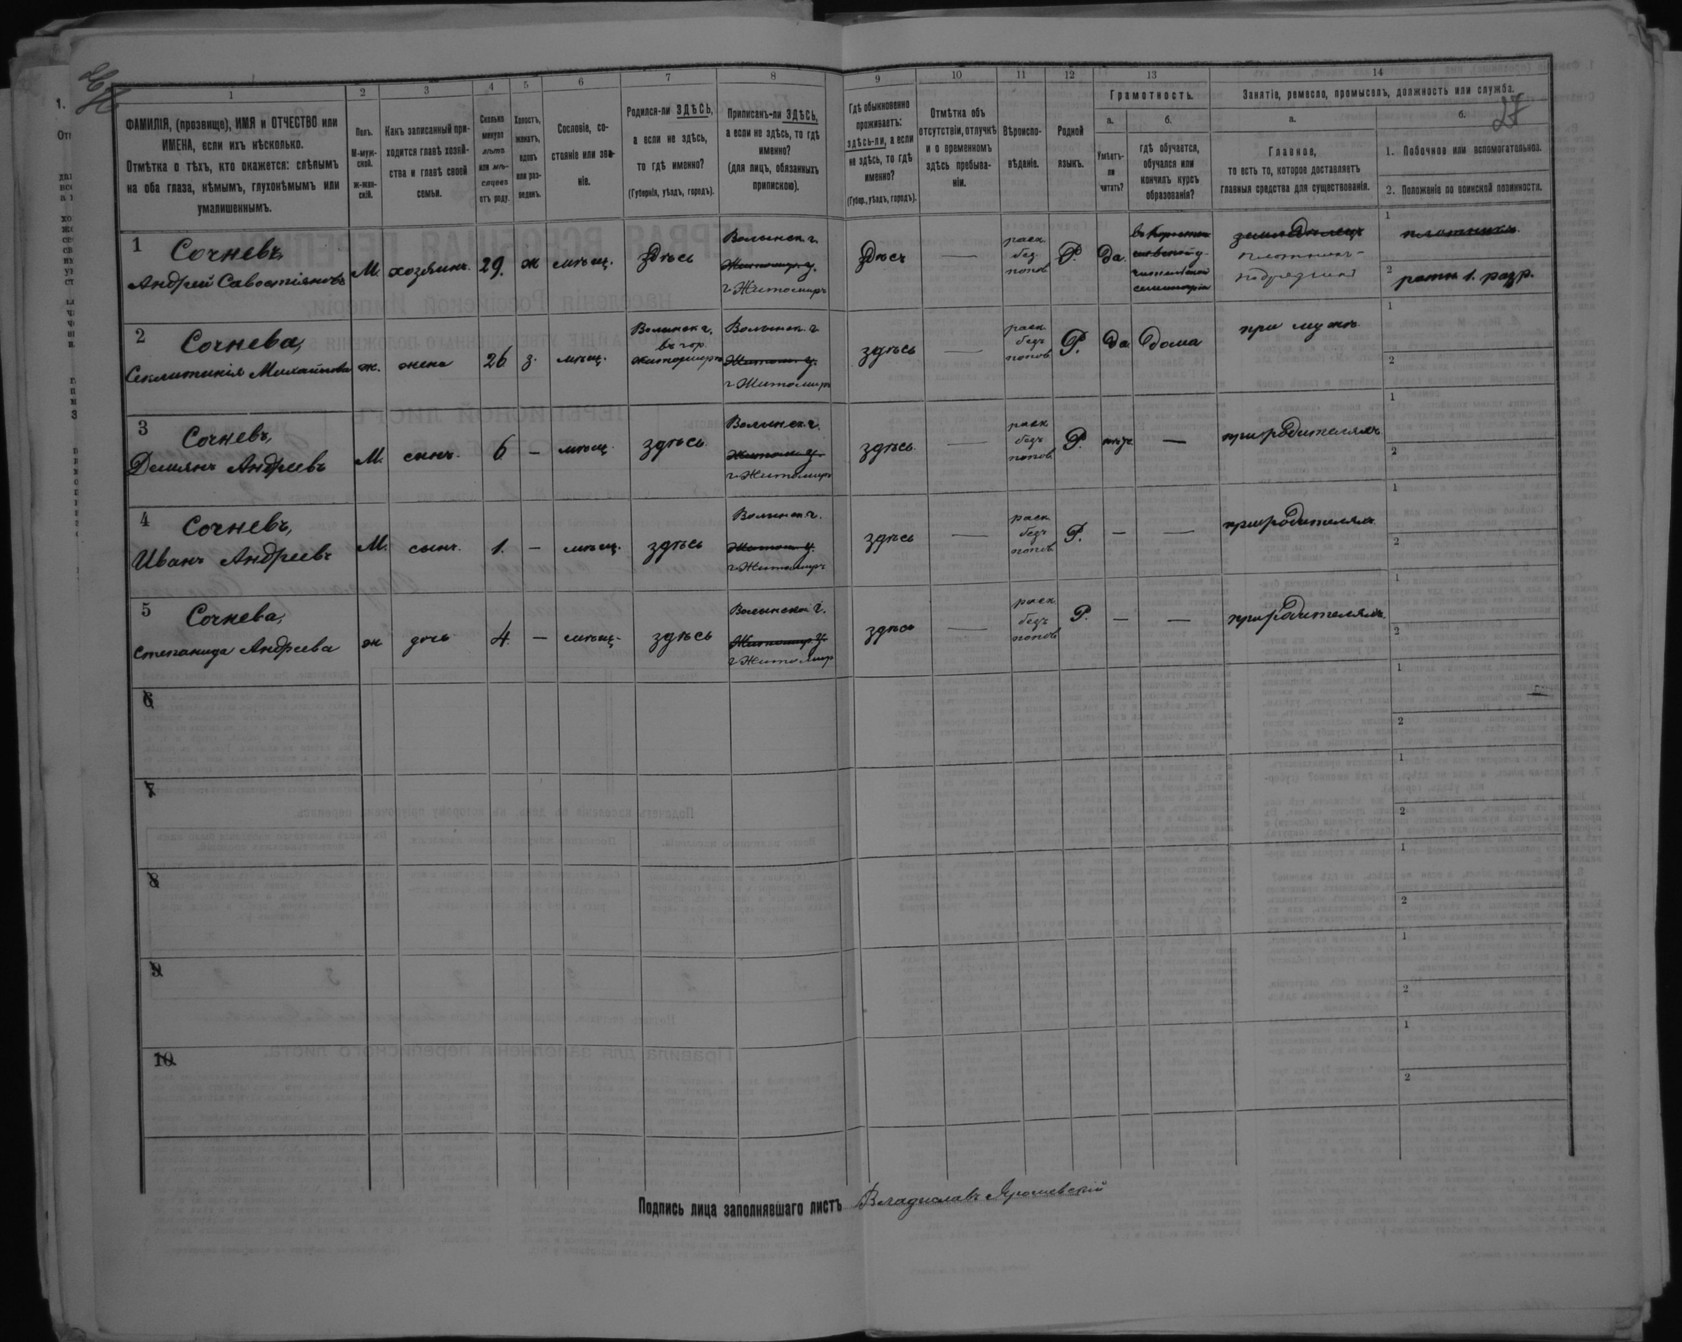 27
1 2 3 4 5 6 7 8 9 10 11 12 13 14
ФАМИЛІЯ, (прозвище), ИМЯ и ОТЧЕСТВО или
ИМЕНА, если ихъ нѣсколько.
Отмѣтка о тѣхъ, кто окажется: слѣпымъ
на оба глаза, нѣмымъ, глухонѣмымъ или
умалишеннымъ.
Полъ.
М-муж-
ской.
Ж-жен-
скій.
Какъ записанный при-
ходится главѣ хозяй-
ства и главѣ своей
семьи.
Сколько
минуло
лѣтъ
или мѣ-
сяцевъ
отъ роду.
Холостъ,
женатъ,
вдовъ
или раз-
веденъ.
Сословіе, со-
стояніе или зва-
ніе.
Родился-ли ЗДѢСЬ,
а если не здѣсь,
то гдѣ именно?
(Губернія, уѣздъ, городъ).
Приписанъ-ли ЗДѢСЬ,
а если не здѣсь, то гдѣ
именно?
(для лицъ, обязанныхъ
припискою).
Гдѣ обыкновенно
проживаетъ:
здѣсь-ли, а если
не здѣсь, то гдѣ
именно?
(Губер., уѣздъ, городъ).
Отмѣтка объ
отсутствіи, отлучкѣ
и о временномъ
здѣсь пребыва-
ніи.
Вѣроиспо-
вѣданіе.
Родной
языкъ.
Грамотность.
а.
Умѣетъ-
ли
читать?
б.
гдѣ обучается,
обучался или
кончилъ курсъ
образованія?
Занятіе, ремесло, промыселъ, должность или служба.
а.
Главное,
то есть то, которое доставляетъ
главныя средства для существованія.
б.
1. Побочное или вспомогательное.
2. Положеніе по воинской повинности.
1
Сочневъ,
Андрей Савостіяновъ
М. хозяинъ. 29. ж мѣщ. Здѣсь
Волынск г.
Житомир. у.
г Житомиръ
Здѣсь —
раск
без
попов
Р. Да.
земледѣлецъ
плотникъ-
подрядчикъ
1 плотникъ
2 ратн 1. разр.
2
Сочнева,
Секлитинія Михайлова
ж. жена 26 з. мѣщ.
Волынск г.
въ гор.
Житомиръ
Волынск. г
Житом. у.
г Житомир
здѣсь —
раск
безъ
попов
Р. Да Дома при мужѣ
1
2
3
Сочневъ,
Демянъ Андреевъ
М. сынъ. 6 — мѣщ. здѣсь
Волынск г.
Житом. у.
г Житомир
здѣсь —
раск
безъ
попов
Р. — при родителяхъ
1
2
4
Сочневъ,
Иванъ Андреевъ
М. сынъ. 1. — мѣщ. здѣсь
Волынск г.
Житом у.
г Житомиръ
здѣсь —
раск
безъ
попов
Р. — — при родителях
1
2
5
Сочнева,
Степанида Андреева
ж дочь 4. — мѣщ. здѣсь
Волынской г.
Житомир у.
г Житомир
здѣсь —
раск
безъ
попов
Р. — — при родителяхъ
1
2
6
1
2
7
1
2
8
1
2
9
1
2
10.
1
2
Подпись лица заполнявшаго листъ Владиславъ Ярошевскій